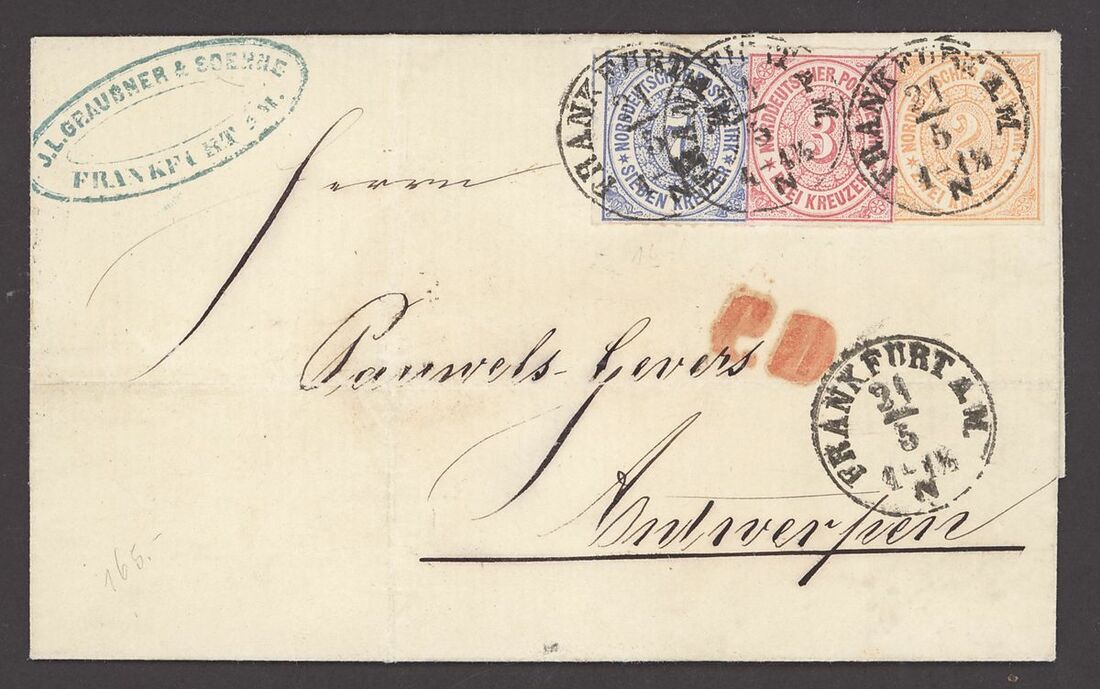 J.L. GRAUBNER & SOEHNE
FRANKFURT A.M.
FRANKFURT A.M.
21
5
1-1½
N
NORDDEUTSCHER POSTBEZIRK
7
SIEBEN KREUZER
NORDDEUTSCHER POST
3
DREI KREUZER
2
ZWEI KREUZER
FRANKFURT A.M.
21
5
1-1½
N
Herrn
Pauwels-Gevers
Antwerpen
FRANKFURT A.M.
21
5
1-1½
N
165.-